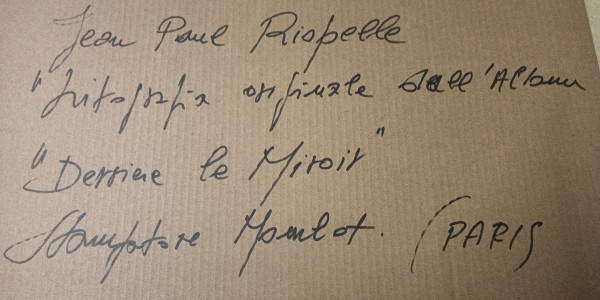 Jean Paul Riopelle
"Litografia originale dall'Album
"Derriere le Miroir"
Stampatore Mourlot. (PARIS